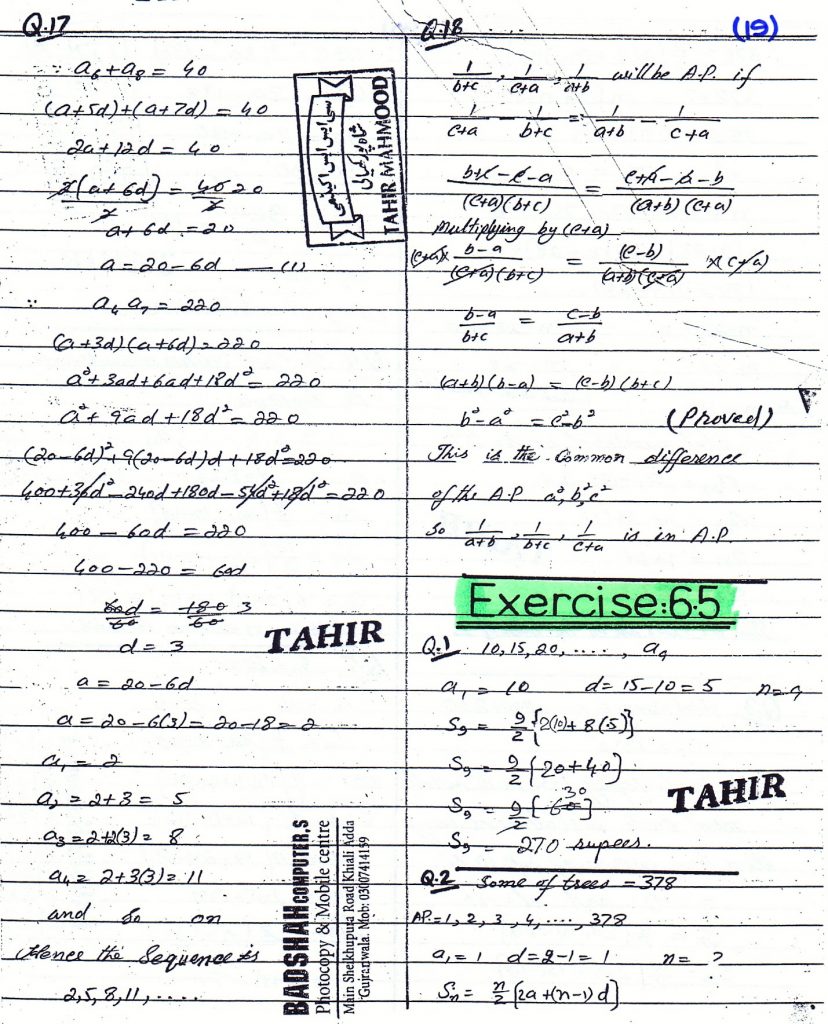 Q.17
∵ a₆+a₈ = 40
(a+5d)+(a+7d) = 40
2a+12d = 40
2(a+6d)/2 = 40/2 20
a+6d = 20
a = 20-6d — (1)
∵ a₄ a₇ = 220
(a+3d)(a+6d) = 220
a²+3ad+6ad+18d² = 220
a²+9ad+18d² = 220
(20-6d)²+9(20-6d)d+18d² = 220
400+36d²-240d+180d-54d²+18d² = 220
400-60d = 220
400-220 = 60d
60d/60 = 180/60 3
d = 3
a = 20-6d
a = 20-6(3) = 20-18 = 2
a₁ = 2
a₂ = 2+3 = 5
a₃ = 2+2(3) = 8
a₄ = 2+3(3) = 11
and so on
Hence the Sequence is
2,5,8,11,.....
TAHIR MAHMOOD
TAHIR
BADSHAH COMPUTER,S
Photocopy & Mobile centre
Main Sheikhupura Road Khiali Adda
Gujranwala. Mob: 03007414159
Q.18
(19)
1/b+c , 1/c+a , 1/a+b will be A.P. if
1/c+a - 1/b+c = 1/a+b - 1/c+a
b+c-c-a/(c+a)(b+c) = c+a-a-b/(a+b)(c+a)
multiplying by (c+a)
(c+a)x b-a/(c+a)(b+c) = (c-b)/(a+b)(c+a) x(c+a)
b-a/b+c = c-b/a+b
(a+b)(b-a) = (c-b)(b+c)
b²-a² = c²-b² (Proved)
This is the Common difference
of the A.P a²,b²,c²
So 1/a+b , 1/b+c , 1/c+a is in A.P.
Exercise:6.5
Q.1 10,15,20,....., a₉
a₁ = 10 d = 15-10 = 5 n = 9
S₉ = 9/2{2(10)+8(5)}
S₉ = 9/2[20+40]
S₉ = 9/2[60] 30
S₉ = 270 rupees.
TAHIR
Q.2 Some of trees = 378
AP = 1, 2, 3, 4,....., 378
a₁ = 1 d = 2-1 = 1 n = ?
Sn = n/2[2a+(n-1)d]